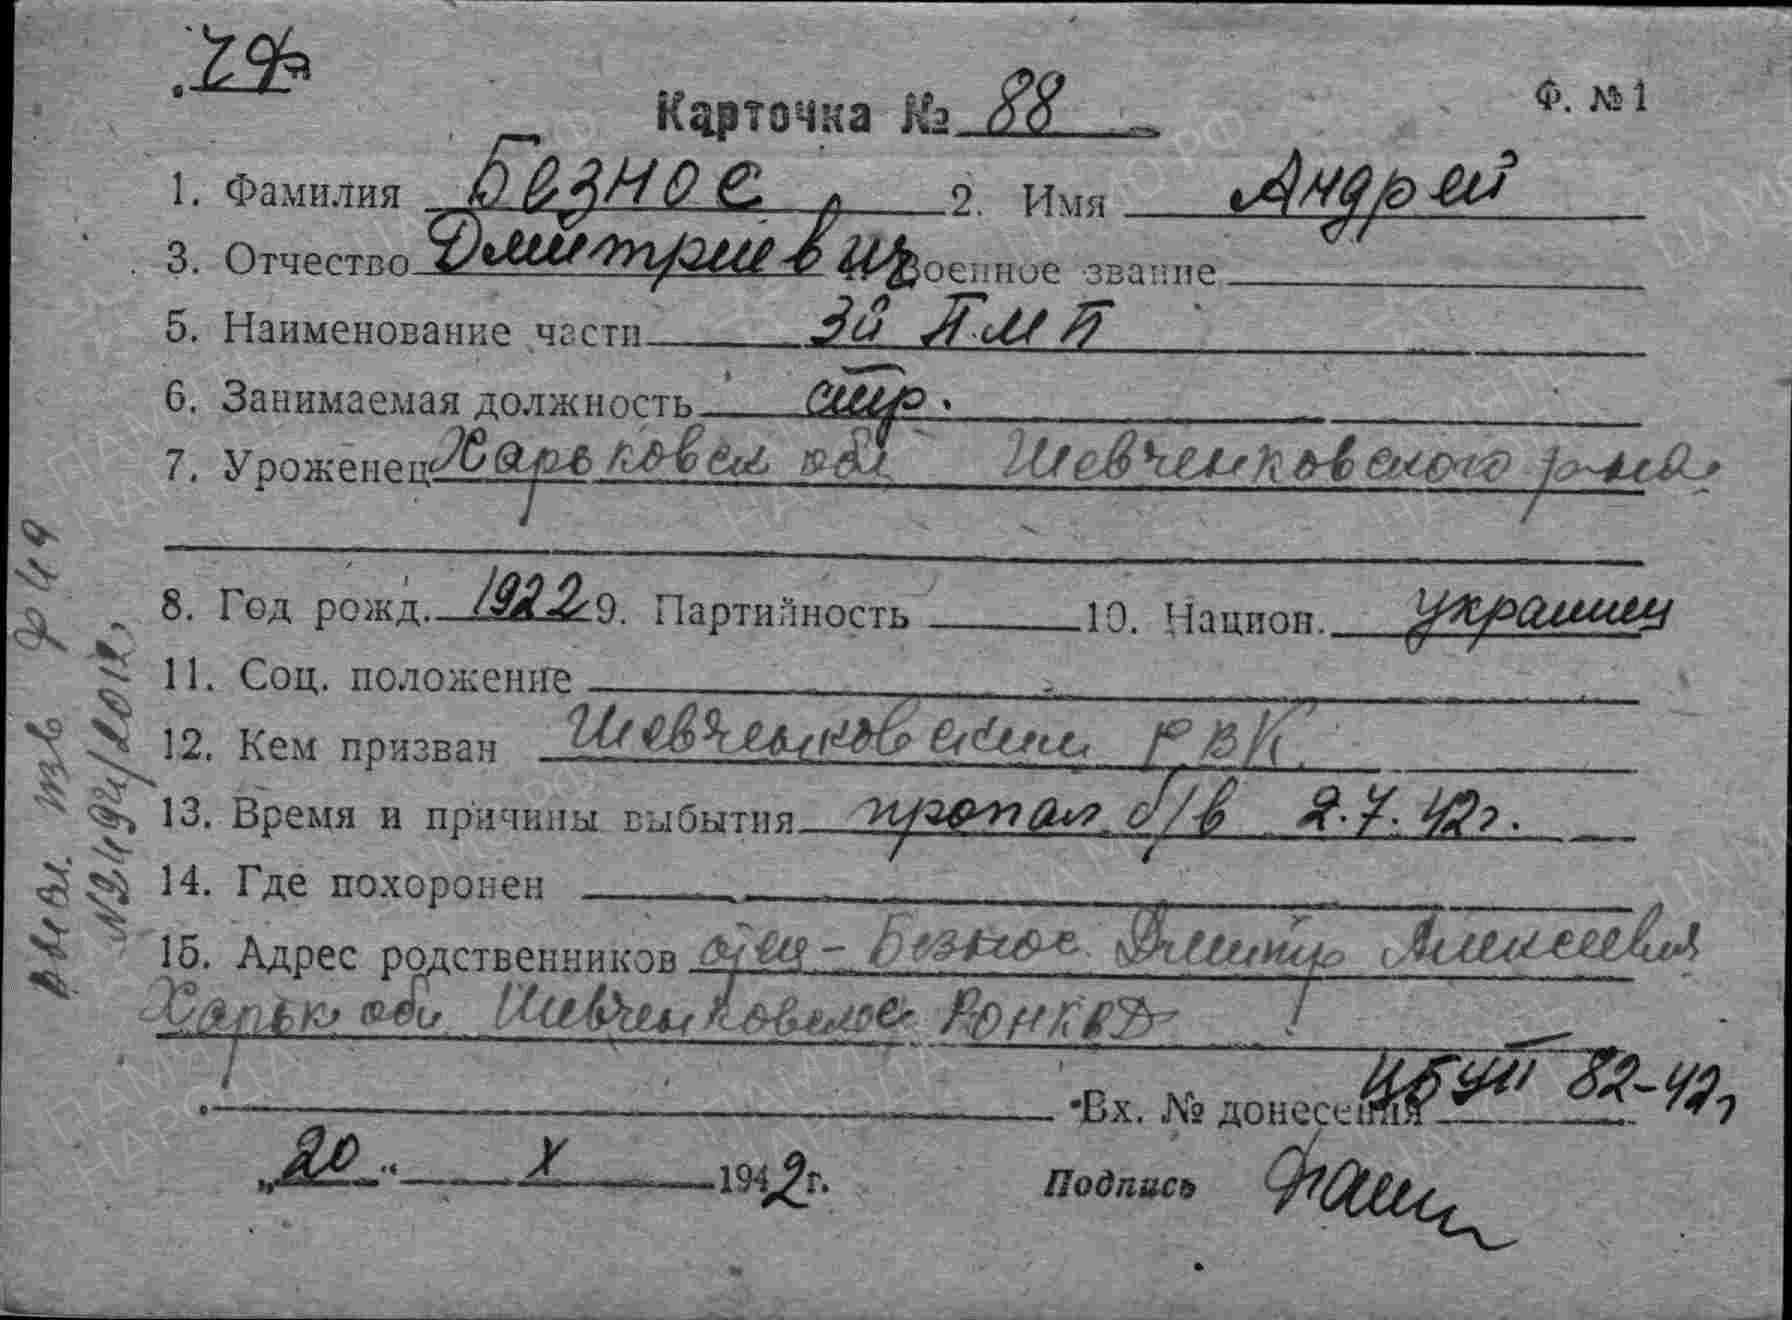 Карточка № 88
Ф. № 1
1. Фамилия Безнос 2. Имя Андрей
3. Отчество Дмитриевич Военное звание
5. Наименование части 3й ПМП
6. Занимаемая должность стр.
7. Уроженец Харьковск обл Шевченковского р-на
8. Год рожд. 1922 9. Партийность 10. Национ. украинец
11. Соц. положение
12. Кем призван Шевченковским РВК
13. Время и причины выбытия пропал б/в 2.7.42г.
14. Где похоронен
15. Адрес родственников отец - Безнос Дмитр Алексеевич
Харьк обл Шевченковское РОНКВД
Вх. № донесения 82-42г
„20“ X 1942г. Подпись